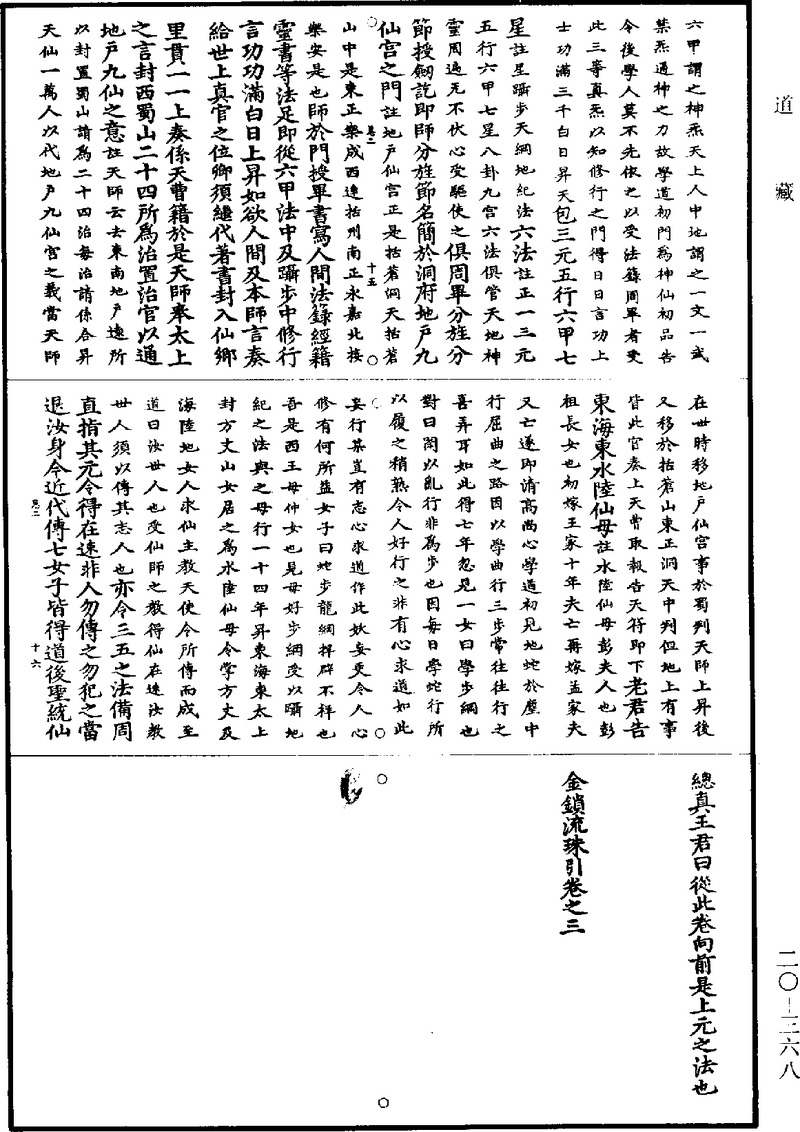 道藏
六甲謂之神炁天上人中地謂之一文一武
禁炁通神之力故學道初門為神仙初品告
令後學人莫不先依之以受法籙周畢者受
此三等真炁以知修行之門得日日言功上
士功滿三千白日昇天包三元五行六甲七
星註星躡步天綱地紀法六法註正一三元
五行六甲七星八卦九宮六法俱管天地神
靈周遍无不伏心受驅使之俱周畢分旌分
節授劒訖即師分旌節名簡於洞府地戶九
仙宮之門註地戶仙宮正是括蒼洞天括蒼
卷三
十五
山中是東正樂成西連括州南正永嘉北接
樂安是也師於門授畢書寫人間法籙經籍
靈書等法足即從六甲法中及躡步中修行
言功功滿白日上昇如欲人間及本師言奏
給世上真官之位鄉須繼代著書封入仙鄉
里貫一一上奏係天曹籍於是天師奉太上
之言封西蜀山二十四所為治置治官以通
地戶九仙之意註天師云去東南地戶遠所
以封置蜀山請為二十四治每治請係合昇
天仙一萬人以代地戶九仙宮之義當天師
在世時移地戶仙宮事於蜀判天師上昇後
又移於括蒼山東正洞天中判但地上有事
皆此官奏上天曹取報告天符即下老君告
東海東水陸仙母註水陸仙母彭夫人也彭
祖長女也初嫁王家十年夫亡再嫁孟家夫
又亡遂即清高尚心學道初見地蛇於塵中
行屈曲之路因以學曲行三步常往往行之
喜弄耳如此得七年忽見一女曰學步綱也
對曰閑以亂行非為步也因每日學蛇行所
以履之稍熟令人好行之非有心求道如此
妄行某豈有志心求道作此妖妄更令人心
修有何所益女子曰蛇步龍綱擇群不祥也
吾是西王母仲女也見母好步綱受以躡地
紀之法與之母行一十四年昇東海東太上
封方丈山女居之為水陸仙母令掌方丈及
海陸地女人求仙主教天使令所傳而成至
道曰汝世人也受仙師之教得仙在速汝教
世人須以傳其志人也亦令三五之法備周
直指其元令得在速非人勿傳之勿犯之當
退汝身今近代傳七女子皆得道後聖統仙
卷三
十六
總真王君曰從此卷向前是上元之法也
金鎖流珠引卷之三
二〇-三六八